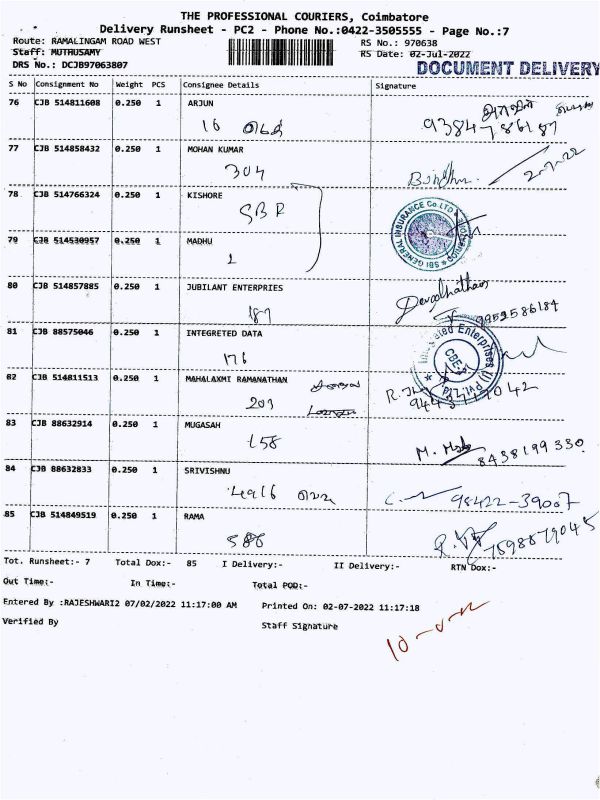 THE PROFESSIONAL COURIERS, Coimbatore
Delivery Runsheet - PC2 - Phone No.:0422-3505555 - Page No.:7
Route: RAMALINGAM ROAD WEST RS No.: 970638
Staff: MUTHUSAMY RS Date: 02-Jul-2022
DRS No.: DCJB97063807 DOCUMENT DELIVERY
S No Consignment No Weight PCS Consignee Details Signature
76 CJB 514811608 0.250 1 ARJUN
16
77 CJB 514858432 0.250 1 MOHAN KUMAR
304 2-7-22
78 CJB 514766324 0.250 1 KISHORE
SBR
SBI GENERAL INSURANCE Co.LTD
79 CJB 514530957 0.250 1 MADHU
1
80 CJB 514857885 0.250 1 JUBILANT ENTERPRISES
187 9952586184
81 CJB 88575046 0.250 1 INTEGRETED DATA
176
Enterprises (I) Pvt. Ltd
CBE-2
82 CJB 514811513 0.250 1 MAHALAXMI RAMANATHAN
203
83 CJB 88632914 0.250 1 MUGASAH
158 8438199330
84 CJB 88632833 0.250 1 SRIVISHNU
98422-39007
85 CJB 514849519 0.250 1 RAMA
586 7598879045
Tot. Runsheet:- 7 Total Dox:- 85 I Delivery:- II Delivery:- RTN Dox:-
Out Time:- In Time:- Total POD:-
Entered By :RAJESHWARI2 07/02/2022 11:17:00 AM Printed On: 02-07-2022 11:17:18
Verified By Staff Signature